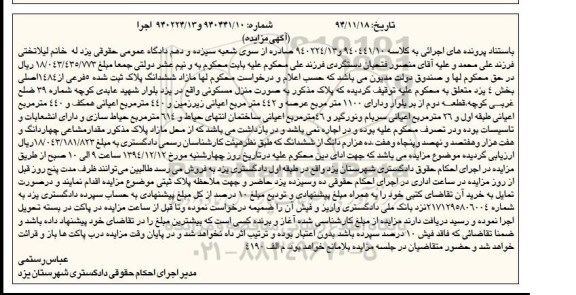 تاریخ: ۹۴/۱۱/۱۸ شماره: ۹۴۰۳۴۱/۱۰ و ۹۴۰۲۲۴/۱۳ اجرا
(آگهی مزایده)
باستناد پرونده های اجرائی به کلاسه ۹۴۰۴۴۱/۱۰ و ۹۴۰۲۲۴/۱۳ صادره از سوی شعبه سیزده و دهم دادگاه عمومی حقوقی یزد له خانم لیلاتختی
فرزند علی محمد و علیه آقای منصور شعبان دستگردی فرزند علی محکوم علیه بابت محکوم به و نیم عشر دولتی جمعا مبلغ ۱۸/۰۴۳/۴۳۵/۷۷۳ ریال
در حق محکوم لها و صندوق دولت مدیون می باشد که حسب اعلام و درخواست محکوم لها مازاد ششدانگ پلاک ثبت شده فرعی از ۱۴۸۴ اصلی
بخش ۴ یزد متعلق به محکوم علیه توقیف گردیده که پلاک مذکور به صورت منزل مسکونی واقع در یزد بلوار شهید عابدی کوچه شماره ۳۹ ضلع
غربی کوچه قطعه دوم از بر بلوار ودارای ۱۱۰۰ متر مربع عرصه و ۴۴۲ متر مربع اعیانی زیرزمین و ۴۴۰ مترمربع اعیانی همکف و ۴۴۰ مترمربع
اعیانی طبقه اول و ۳۶ مترمربع اعیانی سربام ونورگیر و ۴۶ مترمربع اعیانی ساختمان انتهای حیاط و ۶۱۴ مترمربع حیاط سازی و دارای انشعابات و
تاسیسات بوده ودر تصرف محکوم علیه بوده و در اجاره نمی باشد و در بازداشت می باشد که از محل مازاد پلاک مذکور مقدارمشاعی چهاردانگ و
هفت هزار وهفتصد و نهصد وپنجاه وهفت ،ده هزارم دانگ از ششدانگ که طبق نظرهیئت کارشناسان رسمی دادگستری به مبلغ ۱۸/۰۴۳/۱۸۱/۸۲۳ ریال
ارزیابی گردیده موضوع مزایده می باشد که جهت ادای دین محکوم علیه درتاریخ روز چهارشنبه مورخ ۱۳۹۴/۱۲/۱۲ ساعت ۹ الی ۱۰ صبح از طریق
مزایده در اجرای احکام حقوق دادگستری شهرستان یزد واقع در طبقه اول دادگستری یزد به فروش می رسد طالبین می توانند ظرف مدت پنج روز قبل
از روز مزایده در ساعت اداری در اجرای احکام حقوقی ده وسیزده یزد حاضر و جهت ملاحظه پلاک ثبتی موضوع مزایده اقدام نمایند و درصورت
تمایل به خرید آن تقاضای کتبی خود را به همراه مبلغ پیشنهادی و تودیع مبلغ ۱۰ درصد از کل مبلغ پیشنهادی به حساب سپرده دادگستری یزد به
شماره ۲۱۷۱۲۹۵۸۰۶۰۰۴ نزد بانک ملی دادگستری واریز و فیش آن را ضمیمه درخواست نموده وتا قبل از ساعت مزایده در پاکت در بسته تحویل
اجرا نموده و رسید دریافت دارند مزایده از مبلغ کارشناسی شده آغاز و برنده کسی است که بیشترین مبلغ را در تقاضای خود پیشنهاد داده باشد و
ضمنا تقاضائی که فاقد فیش ۱۰ درصد سپرده باشد بدون اعتبار بوده و ترتیب اثر داه نخواهد شد و در پایان وقت مزایده درب پاکت ها باز و قرائت
خواهد شد و حضور متقاضیان در جلسه مزایده بلامانع خواهد بود. م الف ۴۱۹۰
عباس رستمی
مدیر اجرای احکام حقوقی دادگستری شهرستان یزد